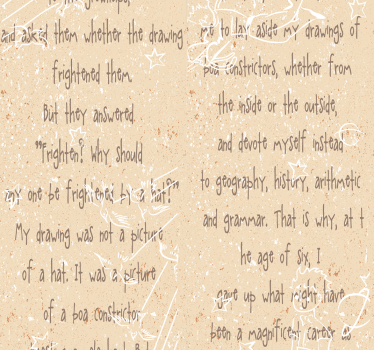 and asked them whether the drawing
frightened them.
But they answered:
"Frighten? Why should
any one be frightened by a hat?"
My drawing was not a picture
of a hat. It was a picture
of a boa constrictor
me to lay aside my drawings of
boa constrictors, whether from
the inside or the outside,
and devote myself instead
to geography, history, arithmetic
and grammar. That is why, at t
he age of six, I
gave up what might have
been a magnificent career as